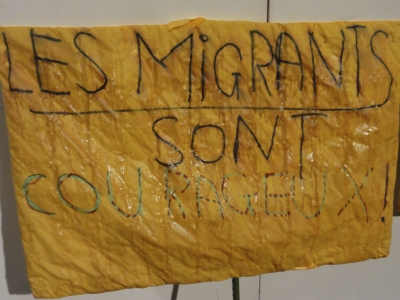 LES MiGRANTS
SONT
COURAGEUX!